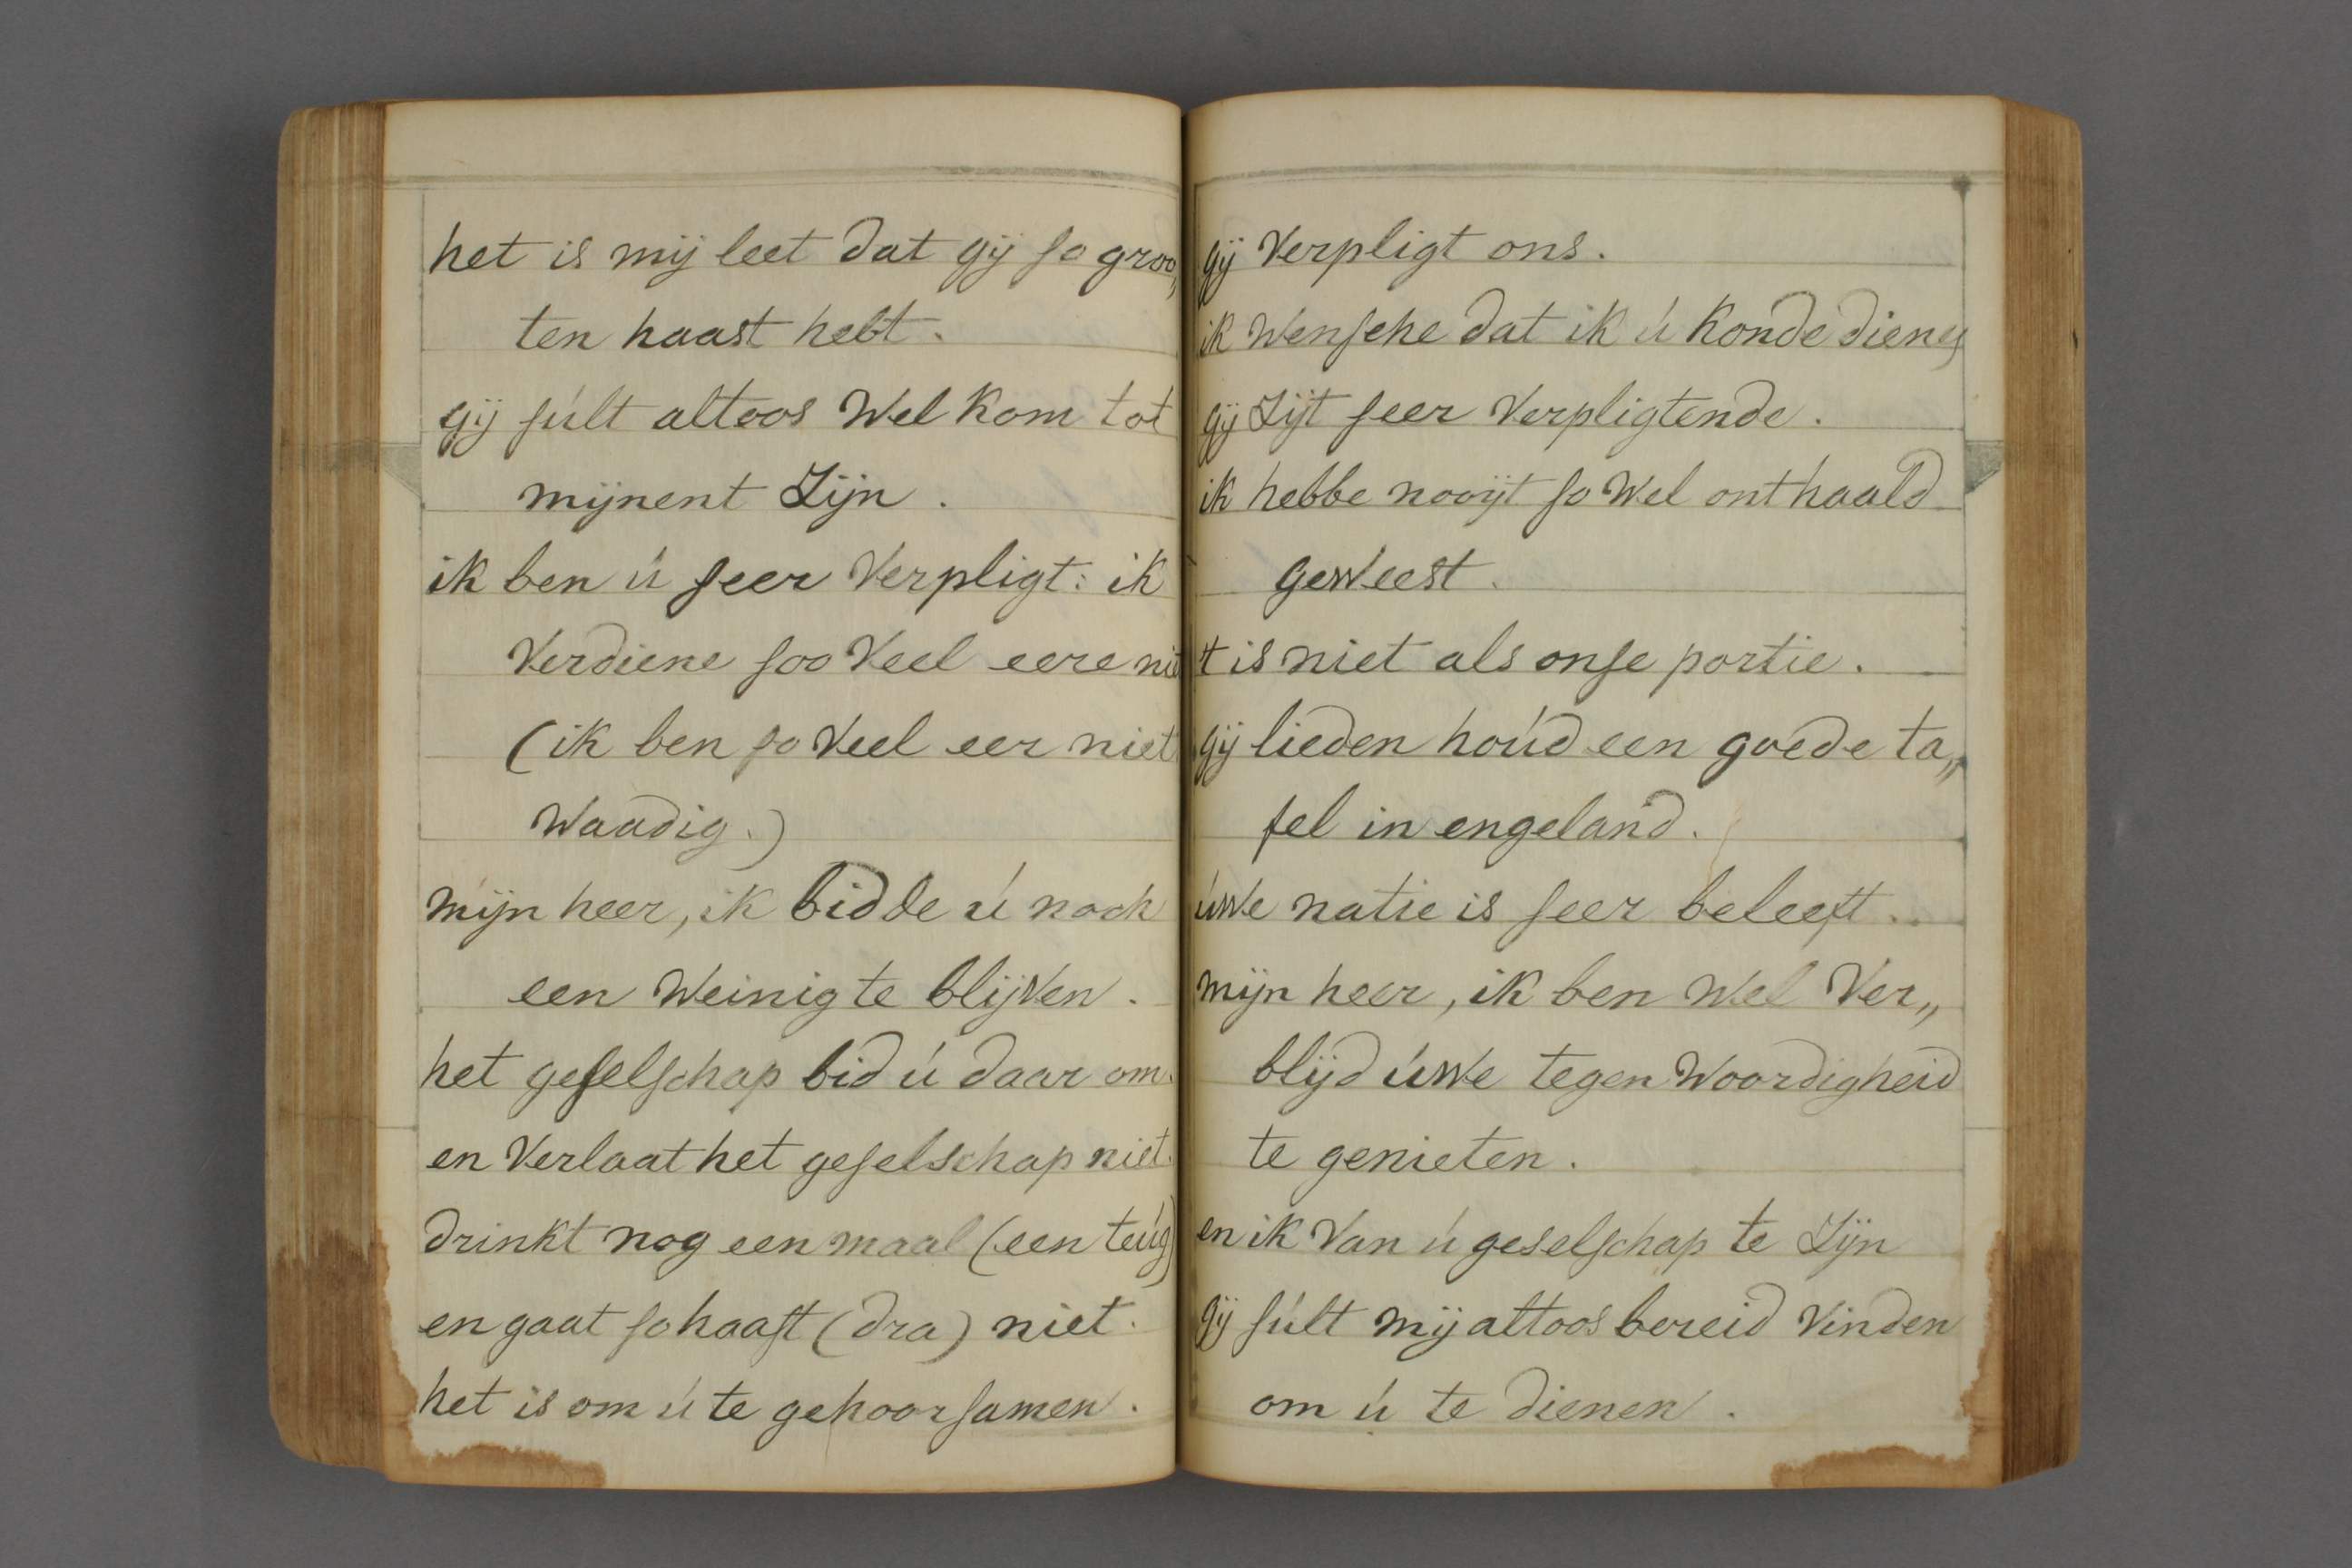 het is mij leet dat gij so groo„
ten haast hebt.
gij súlt altoos Wel Kom tot
mijnent Zijn.
ik ben ú seer Verpligt: ik
Verdiene soo Veel eere niet
(ik ben so Veel eer niet
Waadig.)
mijn heer, ik bidde ú noch
een Weinig te blijven.
het geselschap bid ú daar om.
en Verlaat het geselschap niet.
drinkt nog een maal (een teúg)
en gaat so haast (dra) niet.
het is om ú te gehoorsamen.
gij Verpligt ons.
ik Wensche dat ik ú Konde dienen
gij Zijt seer Verpligtende.
ik hebbe nooijt so Wel onthaald
geweest.
't is niet als onse portie.
gij lieden hoúd een goede ta„
fel in engeland.
úwe natie is seer beleeft.
mijn heer, ik ben Wel Ver„
blijd úwe tegen Woordigheid
te genieten.
en ik Van ú geselschap te Zijn
gij súlt mij altoos bereid Vinden
om ú te dienen.